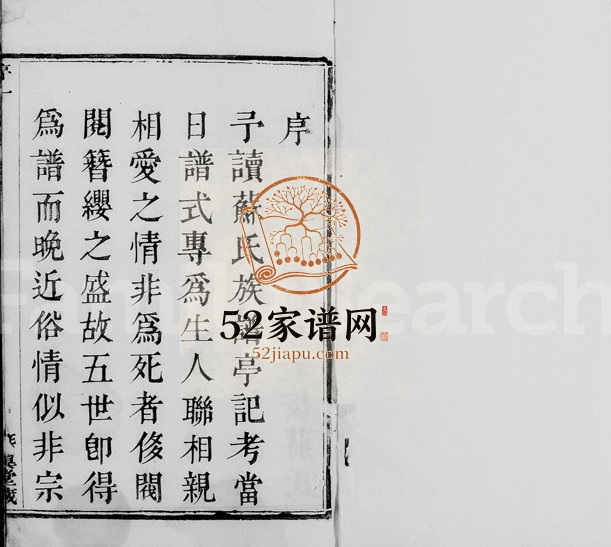 序
予讀蘇氏族譜亭記考當
日譜式專爲生人聯相親
相愛之情非爲死者侈閥
閱簪纓之盛故五世卽得
爲譜而晚近俗情似非宗
52家谱网
52jiapu.com
FamilySearch